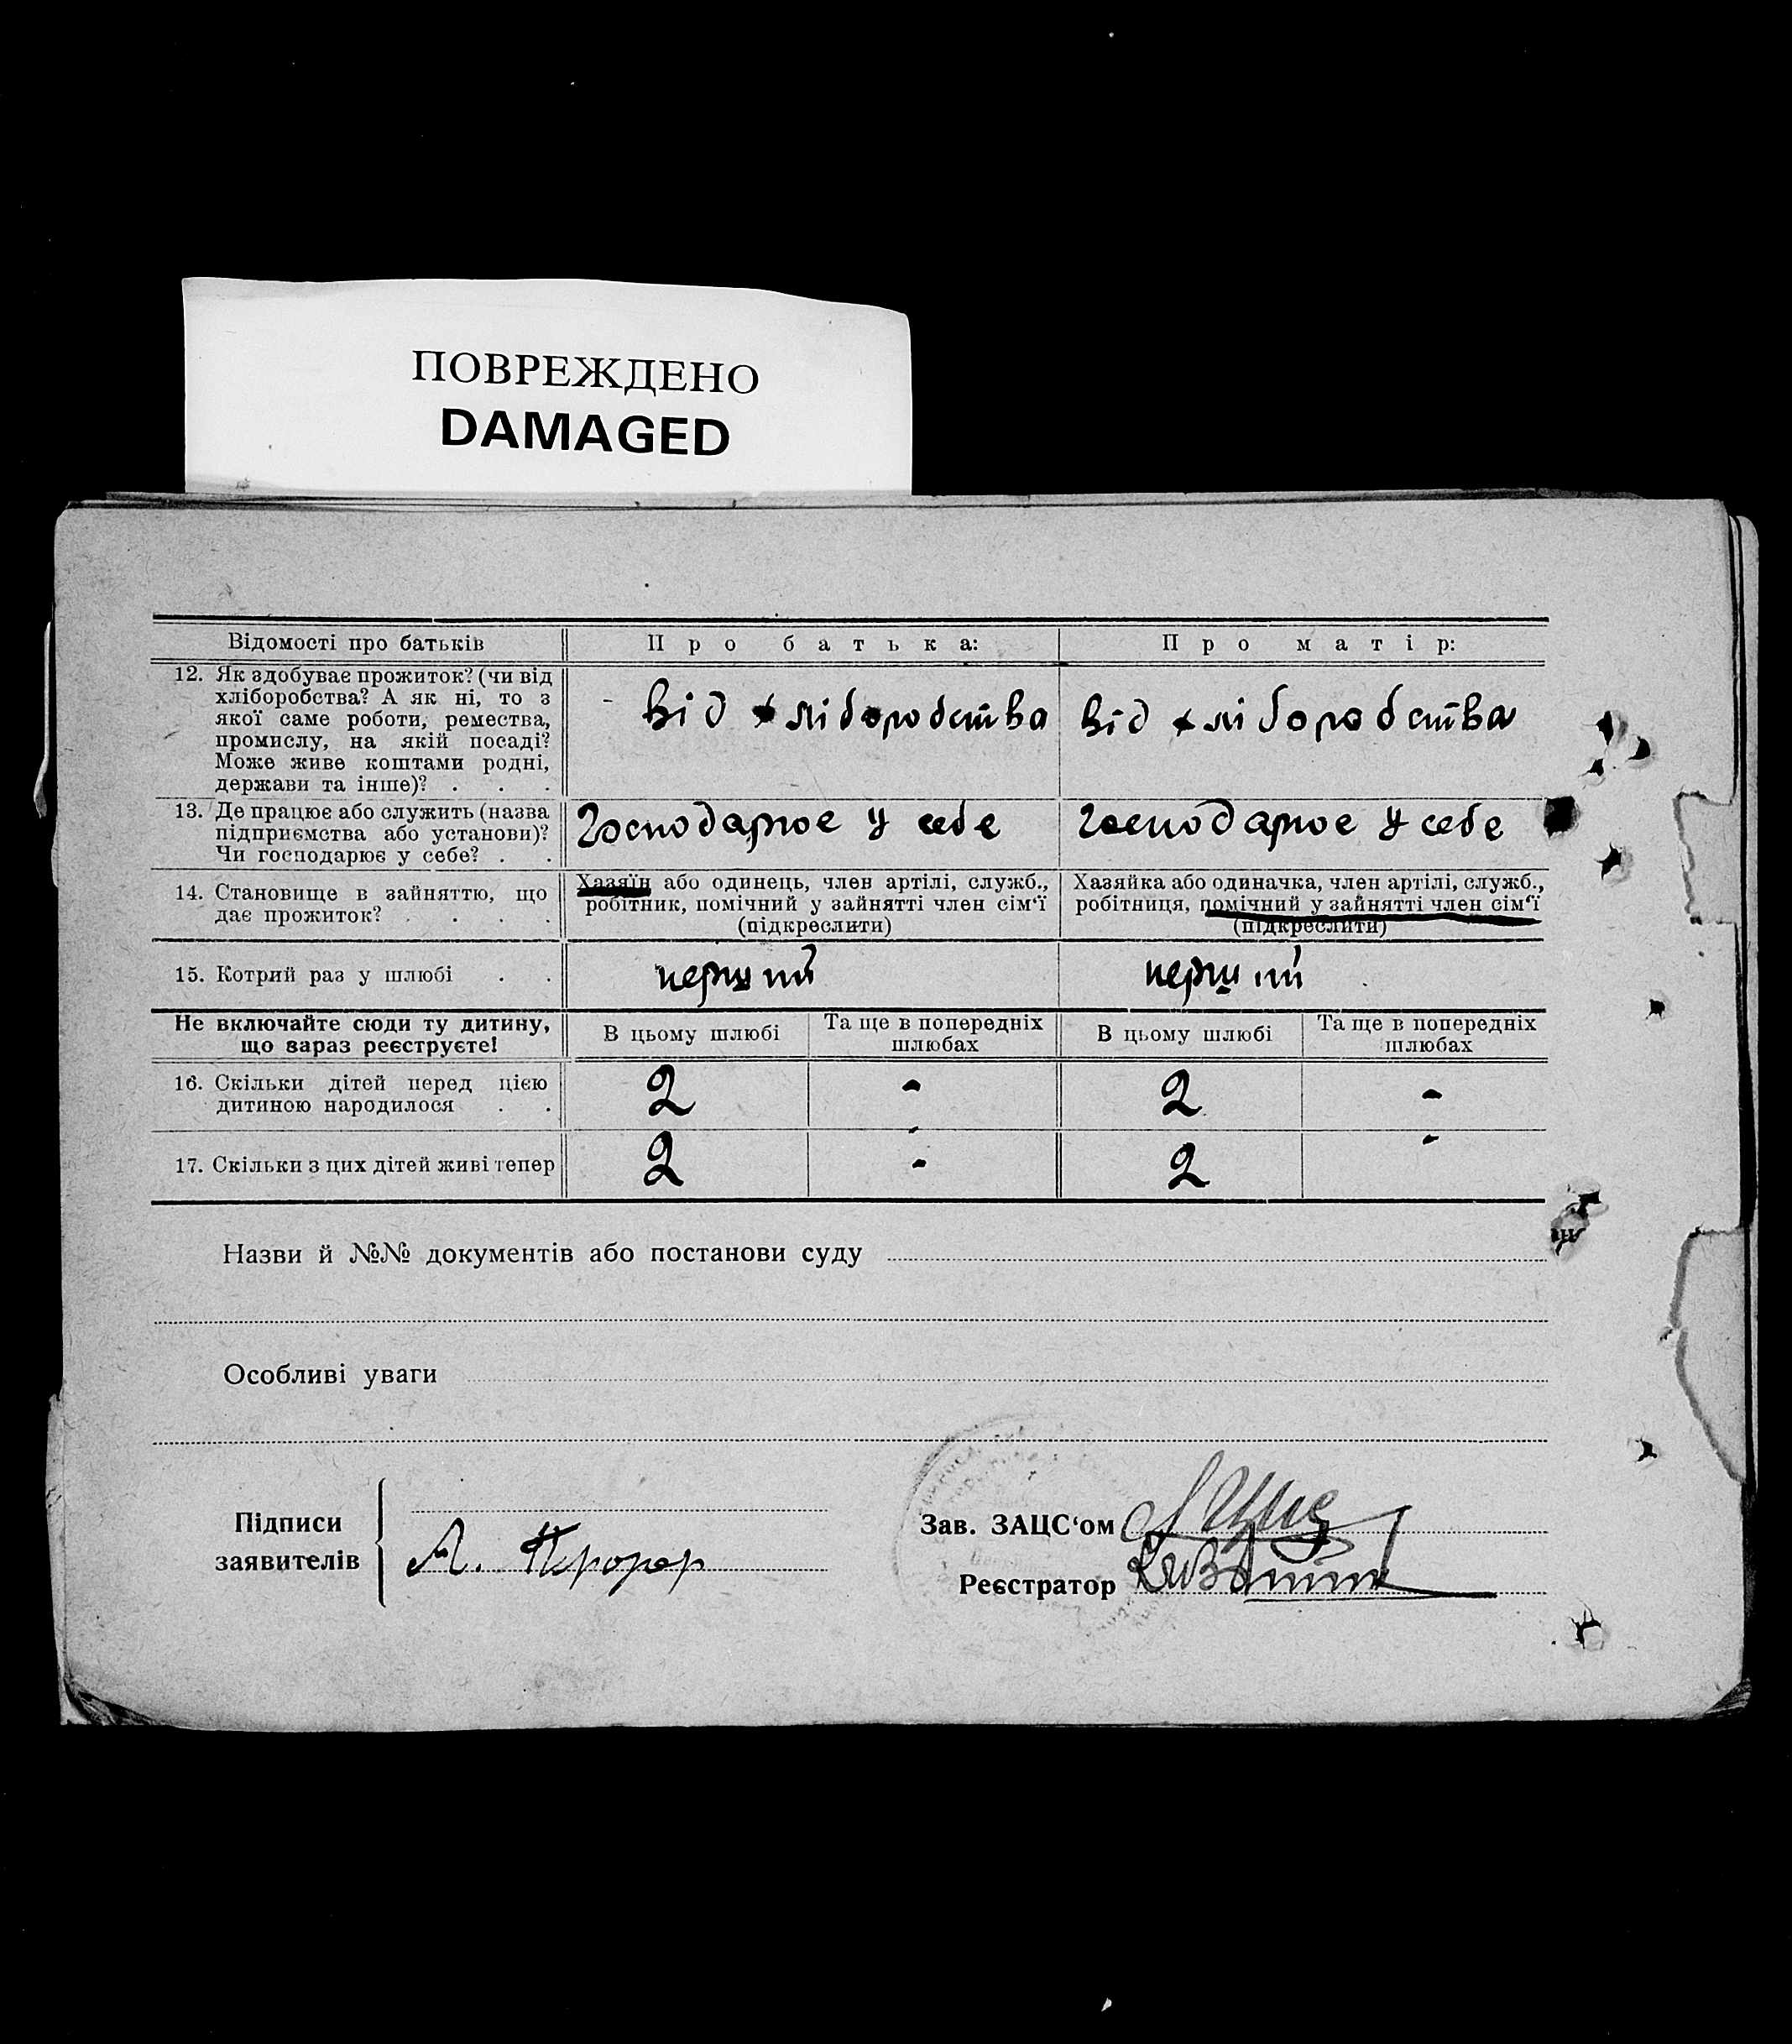 ПОВРЕЖДЕНО
DAMAGED
Відомості про батьків
Про батька:
Про матір:
12. Як здобуває прожиток? (чи від
хліборобства? А як ні, то з
якої саме роботи, ремества,
промислу, на якій посаді?
Може живе коштами родні,
держави та інше)? . . .
від хліборобства
від хліборобства
13. Де працює або служить (назва
підприємства або установи)?
Чи господарює у себе? . .
господарює у себе
господарює у себе
14. Становище в зайняттю, що
дає прожиток? . . . .
Хазяїн або одинець, член артілі, служб.,
робітник, помічний у зайнятті член сім'ї
(підкреслити)
Хазяйка або одиначка, член артілі, служб.,
робітниця, помічний у зайнятті член сім'ї
(підкреслити)
15. Котрий раз у шлюбі . .
перший
перший
Не включайте сюди ту дитину,
що зараз реєструєте!
В цьому шлюбі
Та ще в попередніх
шлюбах
В цьому шлюбі
Та ще в попередніх
шлюбах
16. Скільки дітей перед цією
дитиною народилося . .
2 - 2 -
17. Скільки з цих дітей живі тепер
2 - 2 -
Назви й №№ документів або постанови суду
Особливі уваги
Підписи
заявителів
А.
Зав. ЗАЦС'ом
Реєстратор